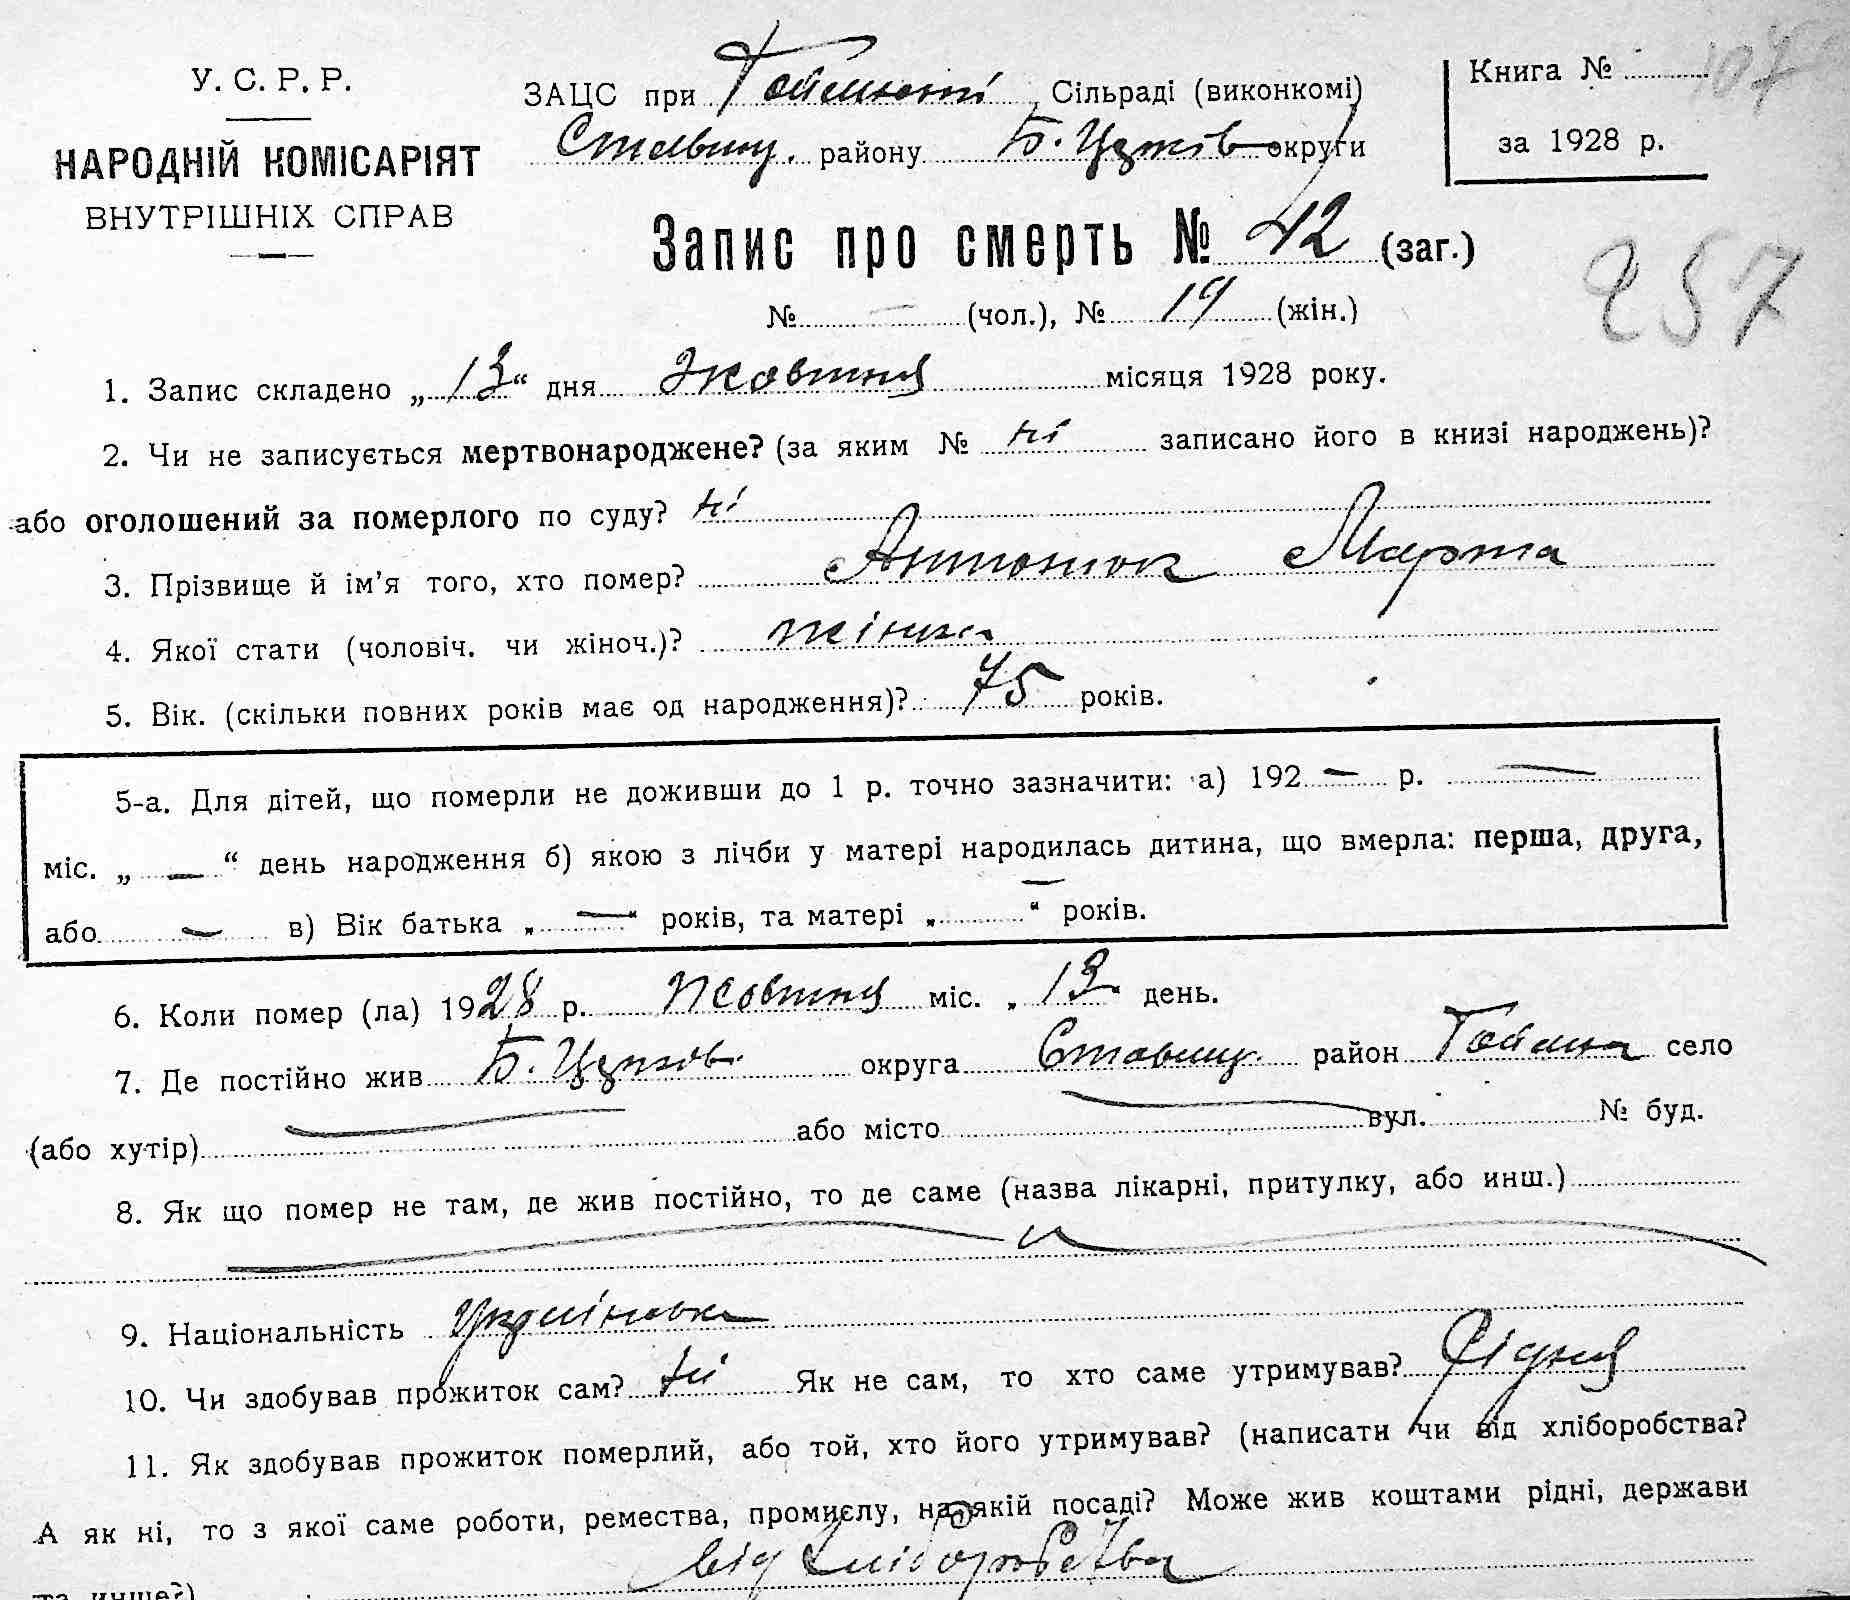 У. С. Р. Р.
НАРОДНІЙ КОМІСАРІЯТ
ВНУТРІШНІХ СПРАВ
ЗАЦС при Сільраді (виконкомі)
Ставищ. району Б. Церків округи
Книга №
за 1928 р.
Запис про смерть № 42 (заг.)
257
№ — (чол.), № 19 (жін.)
1. Запис складено „13“ дня жовтня місяця 1928 року.
2. Чи не записується мертвонароджене? (за яким № ні записано його в книзі народжень)?
або оголошений за померлого по суду? ні
3. Прізвище й ім'я того, хто помер? Антонюк Марта
4. Якої стати (чоловіч. чи жіноч.)? жіноча
5. Вік. (скільки повних років має од народження)? 75 років.
5-а. Для дітей, що померли не доживши до 1 р. точно зазначити: а) 192 — р. —
міс. „ — “ день народження б) якою з лічби у матері народилась дитина, що вмерла: перша, друга,
або — в) Вік батька „ — “ років, та матері „ — “ років.
6. Коли помер (ла) 1928 р. жовтня міс. „13“ день.
7. Де постійно жив Б. Церків. округа Ставищ. район Гейсиха село
(або хутір) — або місто — вул. № буд.
8. Як що помер не там, де жив постійно, то де саме (назва лікарні, притулку, або инш.)
9. Національність Українська
10. Чи здобував прожиток сам? ні Як не сам, то хто саме утримував? Рідня
11. Як здобував прожиток померлий, або той, хто його утримував? (написати чи від хліборобства?
А як ні, то з якої саме роботи, ремества, промислу, на якій посаді? Може жив коштами рідні, держави
та инше?) від Хліборобства